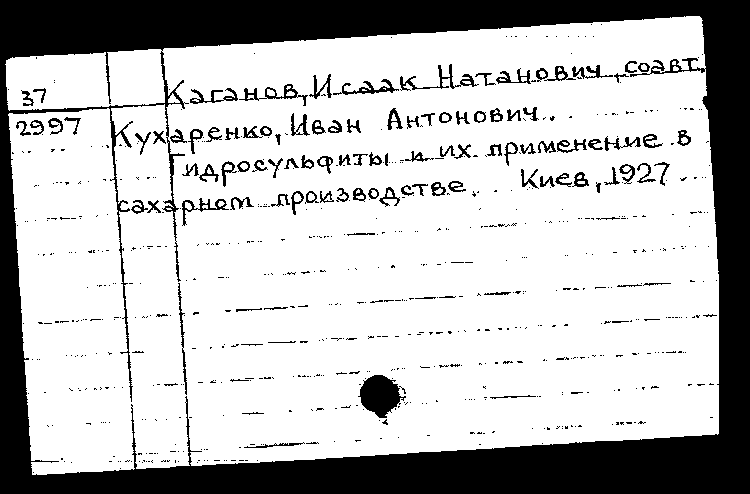 37 Каганов, Исаак Натанович, соавт.
2997 Кухаренко, Иван Антонович.
Гидросульфиты и их применение в
сахарном производстве. Киев, 1927.